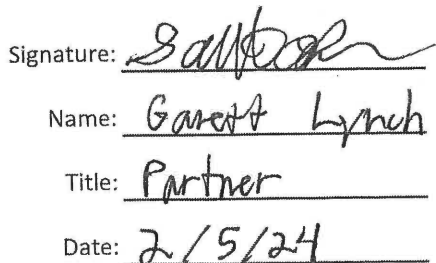 Signature:
Name: Garett Lynch
Title: Partner
Date: 2/5/24